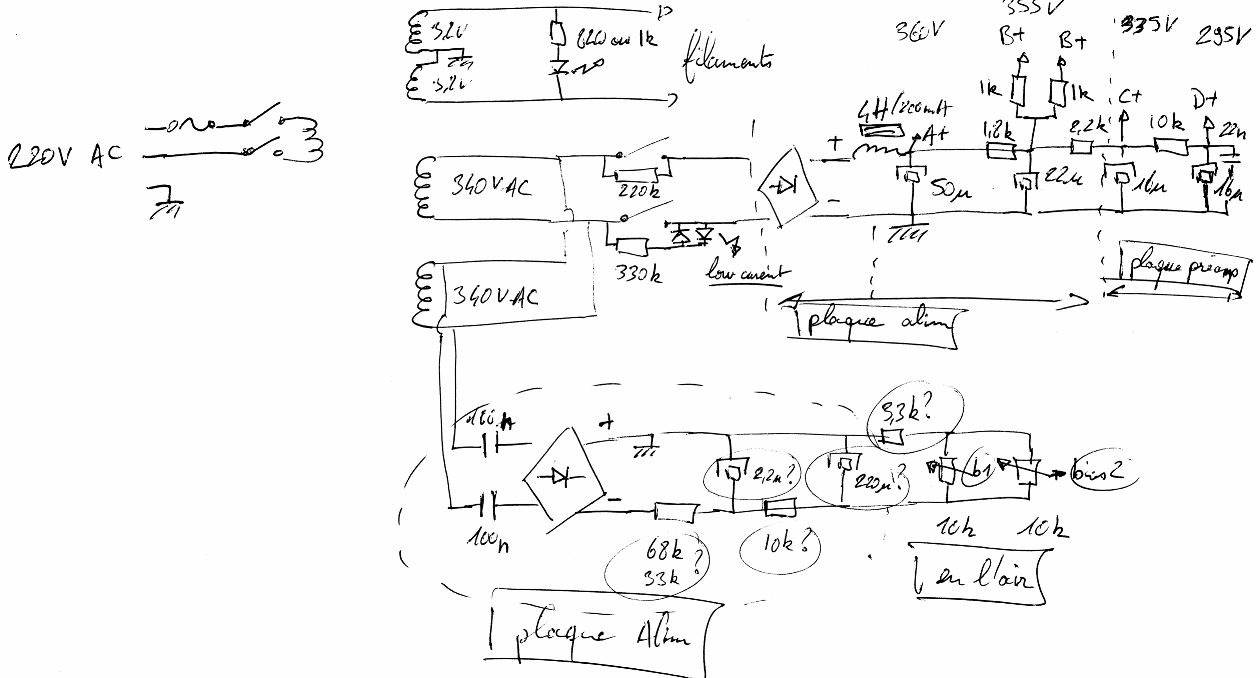 3,2V
3,2V
220 ou 1k
filaments
220V AC
340V AC
220k
330k
low current
340V AC
+
-
4H/200mA
A+
360V
355V
B+
B+
1k
1k
335V
295V
C+
D+
1,8k
2,2k
10k
22n
50µ
22µ
16µ
16µ
plaque alim
plaque préamp
100n
100n
+
-
68k ?
33k
2,2µ?
10k?
220µ?
3,3k?
b1
bias2
10k
10k
en l'air
plaque Alim